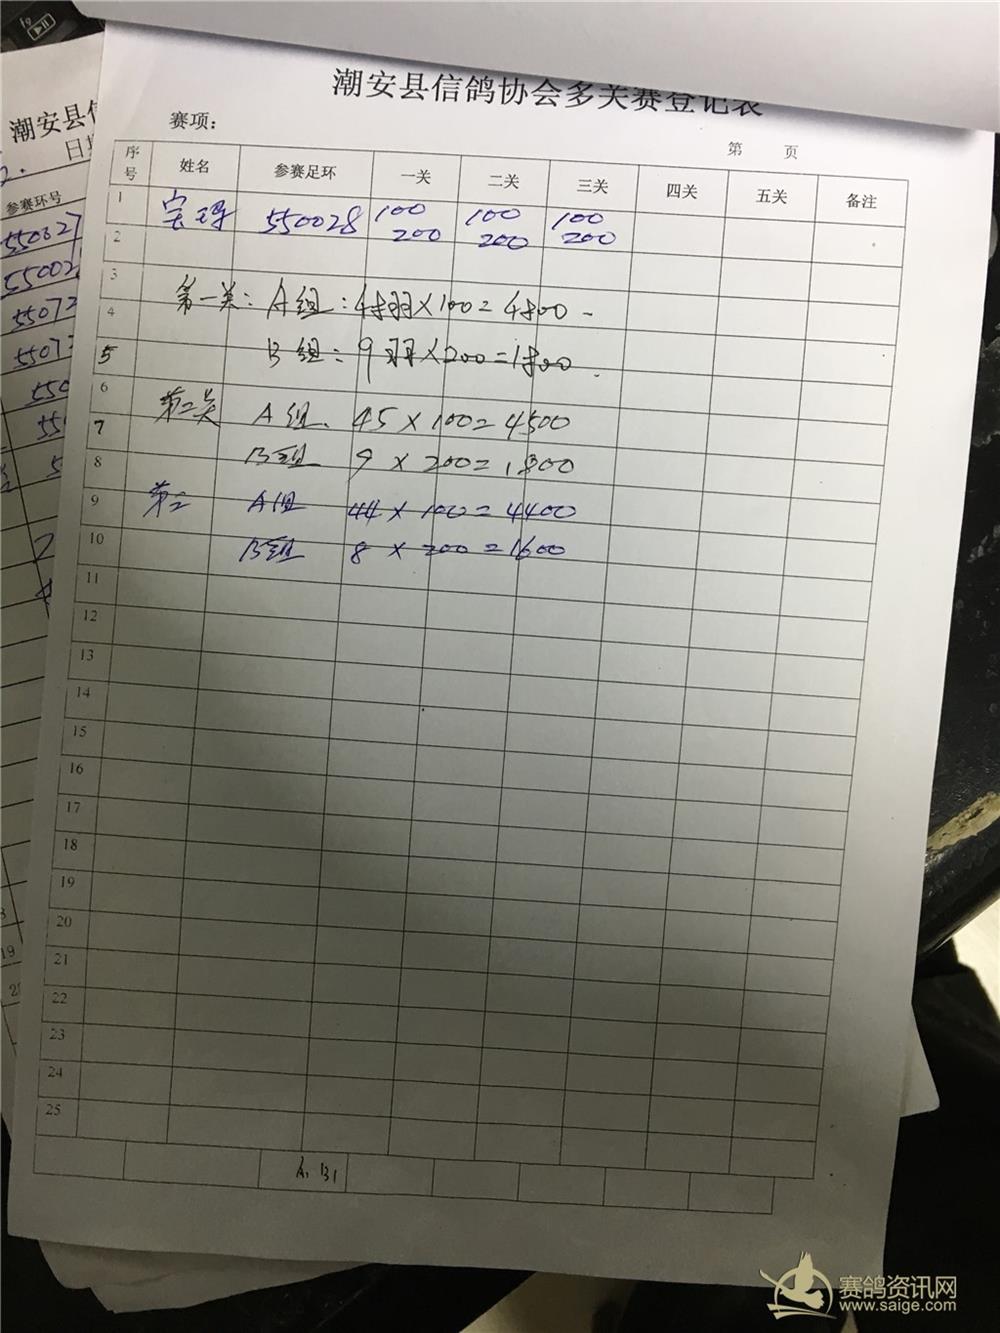 潮安县信鸽协会多关赛登记表
赛项：
第 页
序号 姓名 参赛足环 一关 二关 三关 四关 五关 备注
1 550028 100 100 100
2 200 200 200
3 第一关: A组: 48羽×100=4800
4
5 B组: 9羽×200=1800
6 第二关 A组. 45×100=4500
7
8 B组 9×200=1800
9 第三 A组 44×100=4400
10 B组 8×200=1600
11
12
13
14
15
16
17
18
19
20
21
22
23
24
25
A1 B1
潮安县信
日期
参赛环号
赛鸽资讯网
www.saige.com